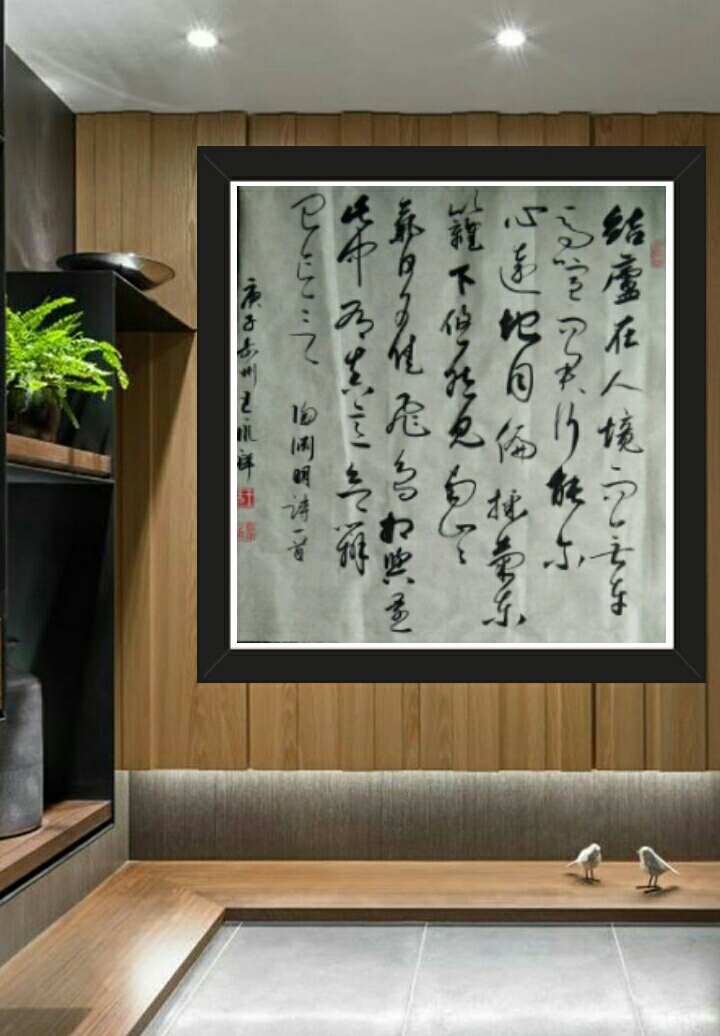 結廬在人境而無車
馬喧問君何能尔
心遠地自偏採菊東
籬下悠然見南山〻
氣日夕佳飛鳥相與還
此中有真意欲辨
已忘言 陶淵明詩一首
庚子